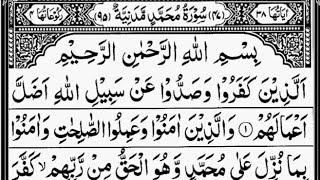 اٰیَاتُهَا ۳۸ (۴۷) سُوْرَةُ مُحَمَّدٍ مَّدَنِیَّةٌ (۹۵) رُکُوْعَاتُهَا ۴
بِسْمِ اللّٰهِ الرَّحْمٰنِ الرَّحِیْمِ
اَلَّذِیْنَ کَفَرُوْا وَصَدُّوْا عَنْ سَبِیْلِ اللّٰهِ اَضَلَّ
اَعْمَالَهُمْ ۱ وَالَّذِیْنَ اٰمَنُوْا وَعَمِلُوا الصّٰلِحٰتِ وَاٰمَنُوْا
بِمَا نُزِّلَ عَلٰی مُحَمَّدٍ وَّهُوَ الْحَقُّ مِنْ رَّبِّهِمْ ۙ کَفَّرَ